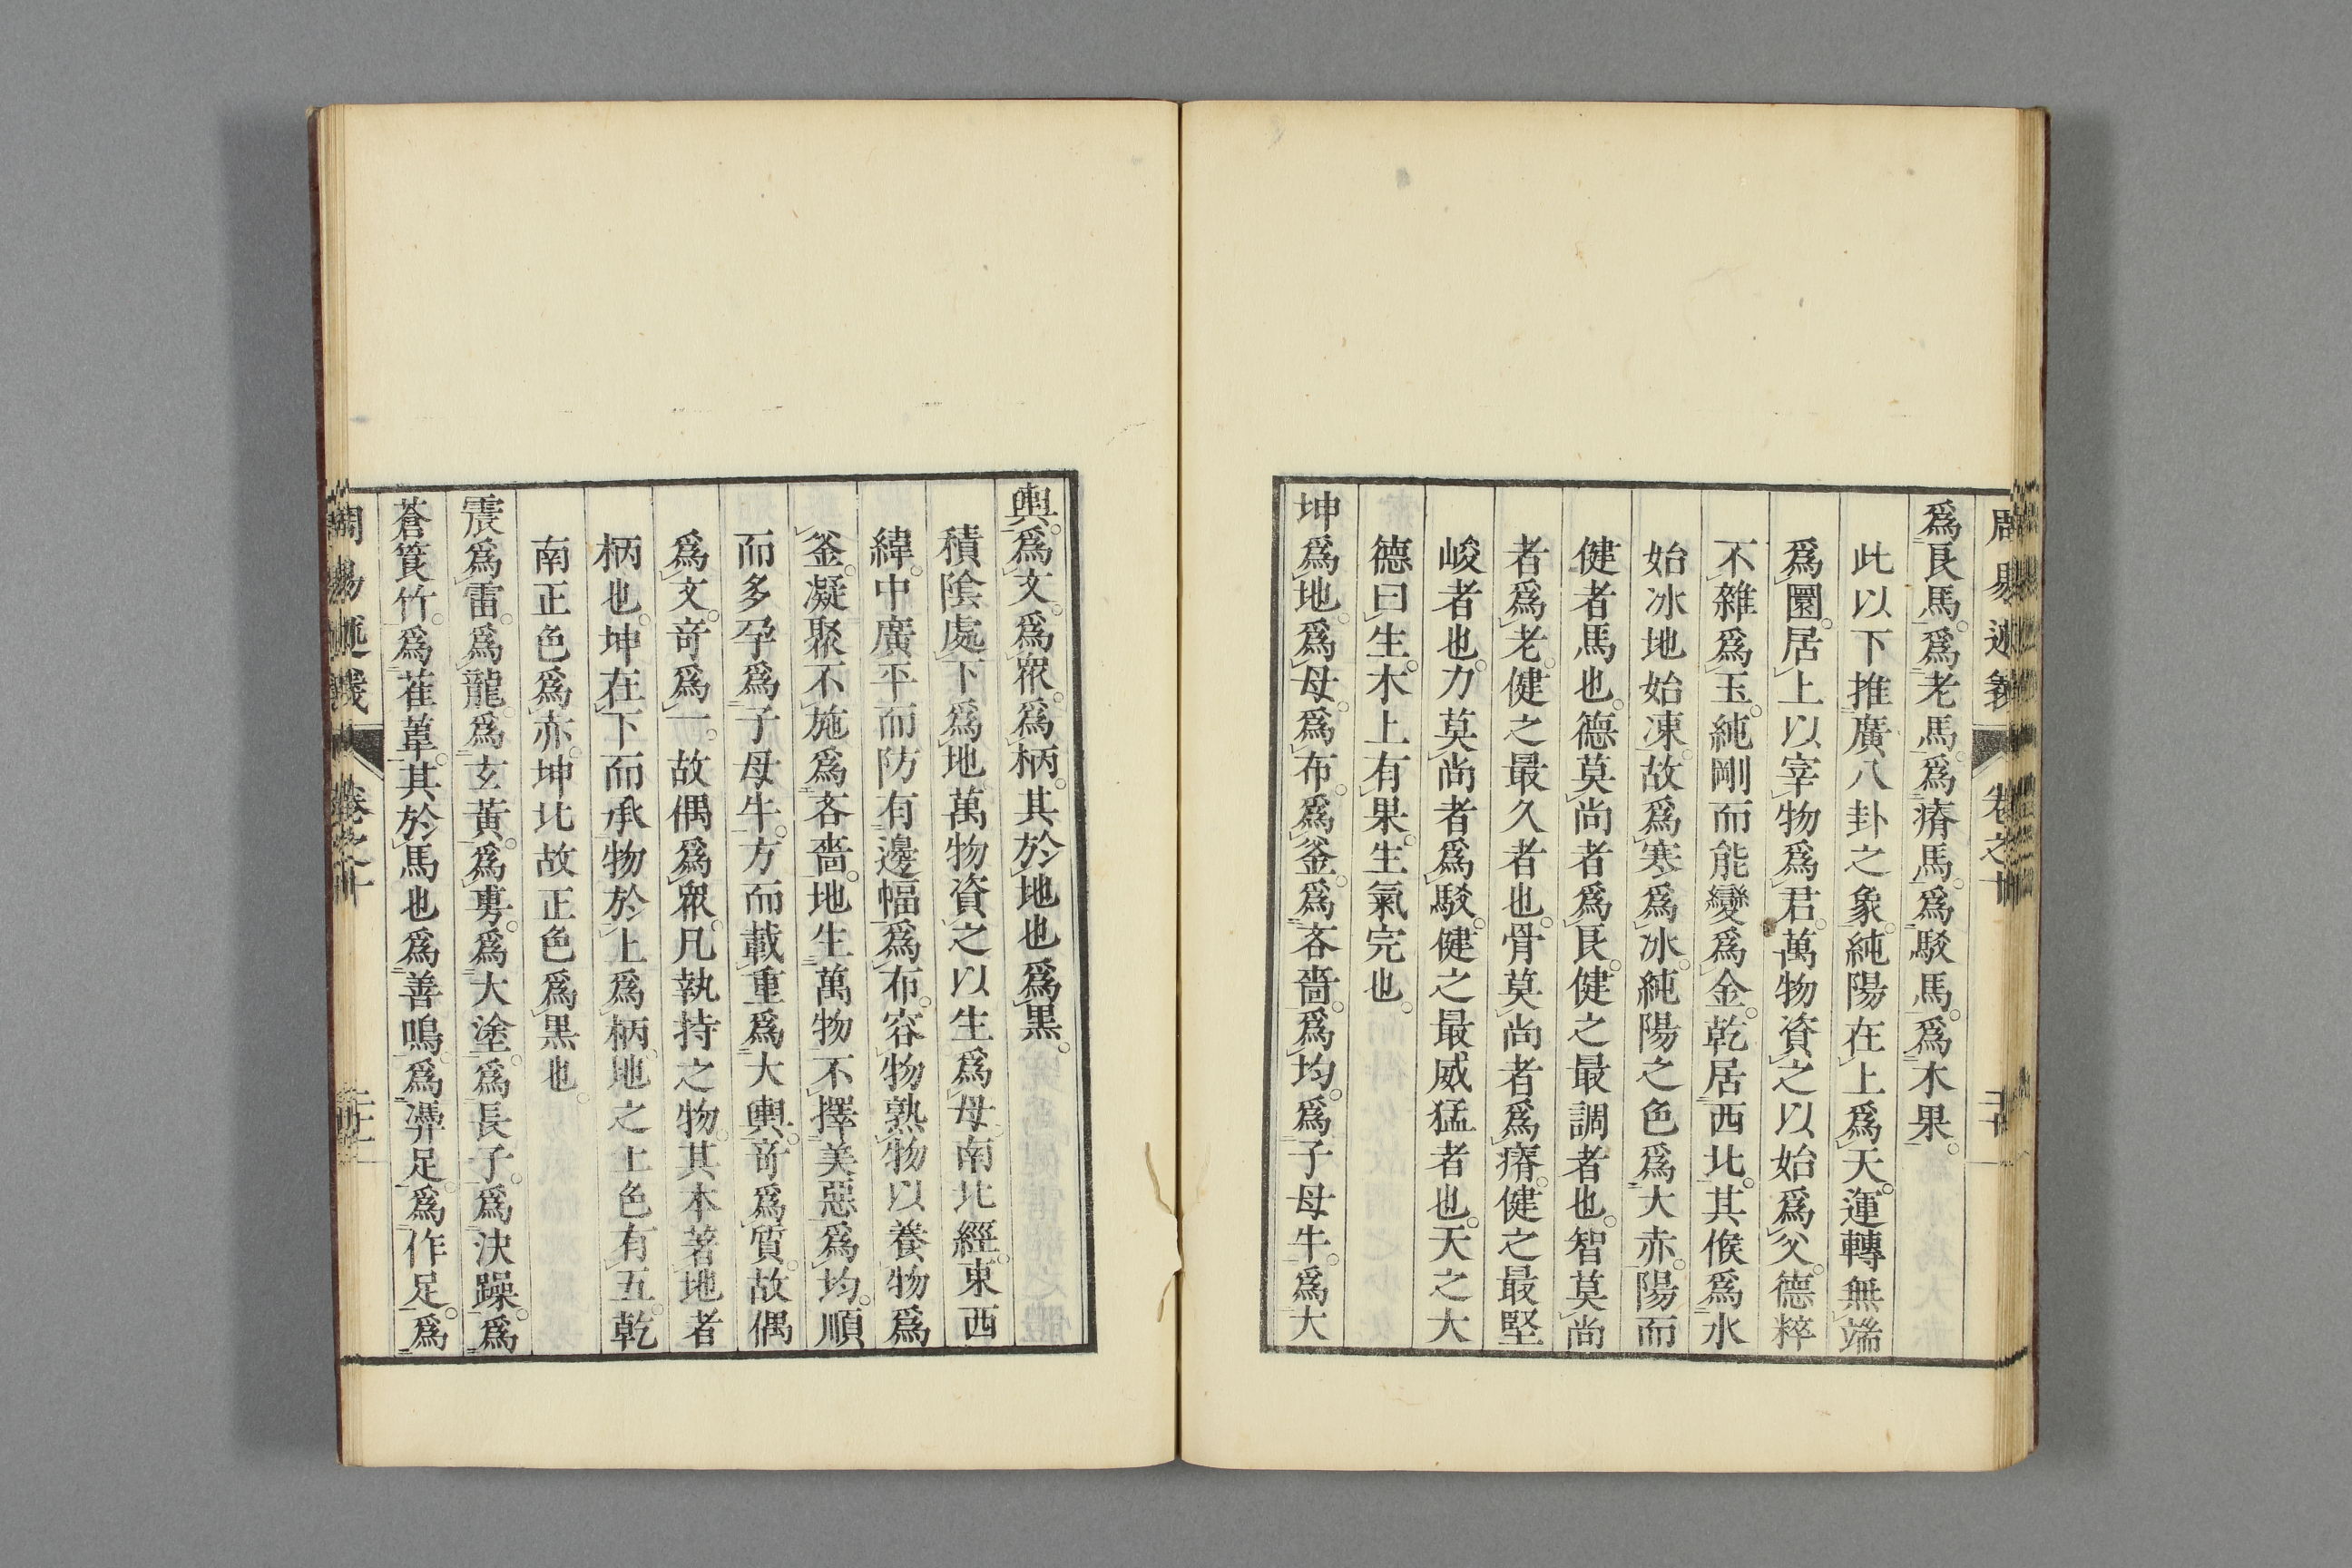 爲良馬。爲老馬。爲瘠馬。爲駁馬。爲木果。
此以下推廣八卦之象。純陽在上爲天。運轉無端
爲圜。居上以宰物爲君。萬物資之以始爲父。德粹
不雜爲玉。純剛而能變爲金。乾居西北。其候爲水
始冰地始凍。故爲寒爲冰。純陽之色爲大赤。陽而
健者馬也。德莫尚者爲良。健之最調者也。智莫尚
者爲老。健之最久者也。骨莫尚者爲瘠。健之最堅
峻者也。力莫尚者爲駁。健之最威猛者也。天之大
德曰生。木上有果。生氣完也。
坤爲地。爲母。爲布。爲釜。爲吝嗇。爲均。爲子母牛。爲大
輿。爲文。爲衆。爲柄。其於地也爲黒。
積陰處下爲地。萬物資之以生爲母。南北經。東西
緯。中廣平而防有邊幅爲布。容物熟物以養物爲
釜。凝聚不施爲吝嗇。地生萬物不擇美惡爲均。順
而多孕爲子母牛。方而載重爲大輿。奇爲質。故偶
爲文。奇爲一。故偶爲衆。凡執持之物。其本著地者
柄也。坤在下而承物於上爲柄。地之上色有五。乾
南正色爲赤。坤北故正色爲黒也。
震爲雷。爲龍。爲玄黄。爲旉。爲大塗。爲長子。爲決躁。爲
蒼筤竹。爲萑葦。其於馬也爲善鳴。爲馵足。爲作足。爲
周易述義 卷之十